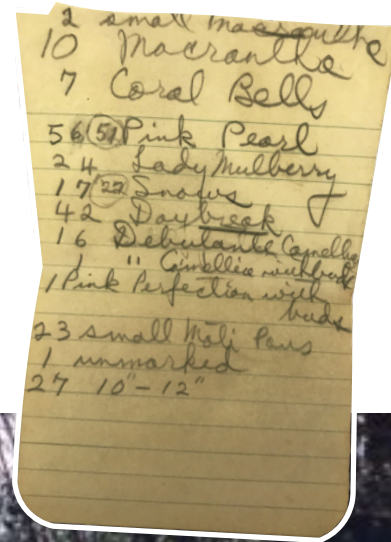 2 small Macrantha
10 Macrantha
7 Coral Bells
56 (51) Pink Pearl
24 Lady Mulberry
17 (22) Snows
42 Daybreak
16 Debutante Camellia
1 " Camellia with buds
1 Pink Perfection with
buds
23 small Moli Pans
1 unmarked
27 10" - 12"